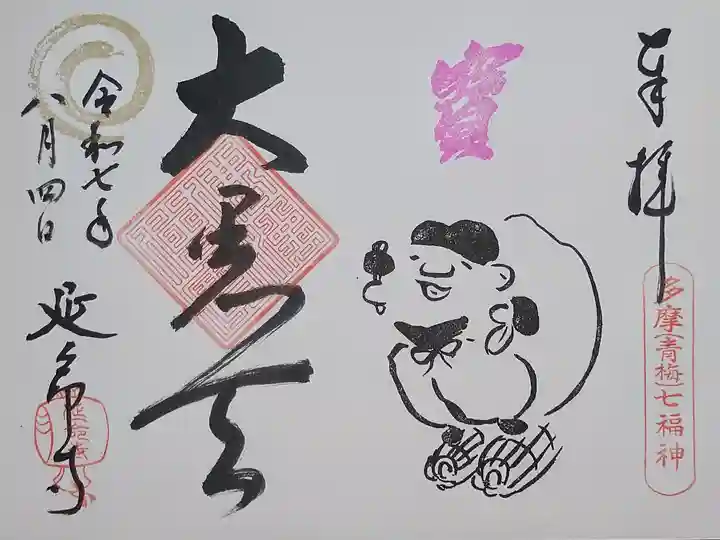 奉拝
多摩(青梅)七福神
寳
大黒天
令和七年
八月四日
延命寺